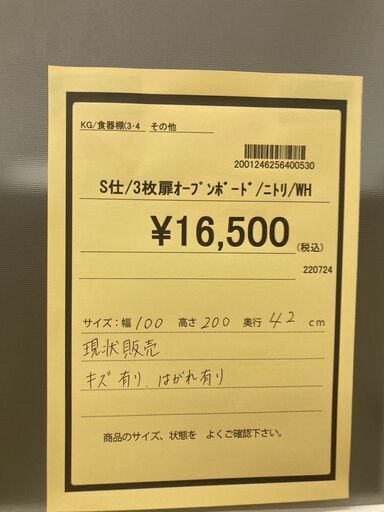 KG/食器棚(3・4 その他
2001246256400530
S仕/3枚扉ｵｰﾌﾟﾝﾎﾞｰﾄﾞ/ﾆﾄﾘ/WH
¥16,500(税込)
220724
サイズ:幅100 高さ200 奥行42 cm
現状販売
キズ有り、はがれ有り
商品のサイズ、状態を よくご確認下さい。